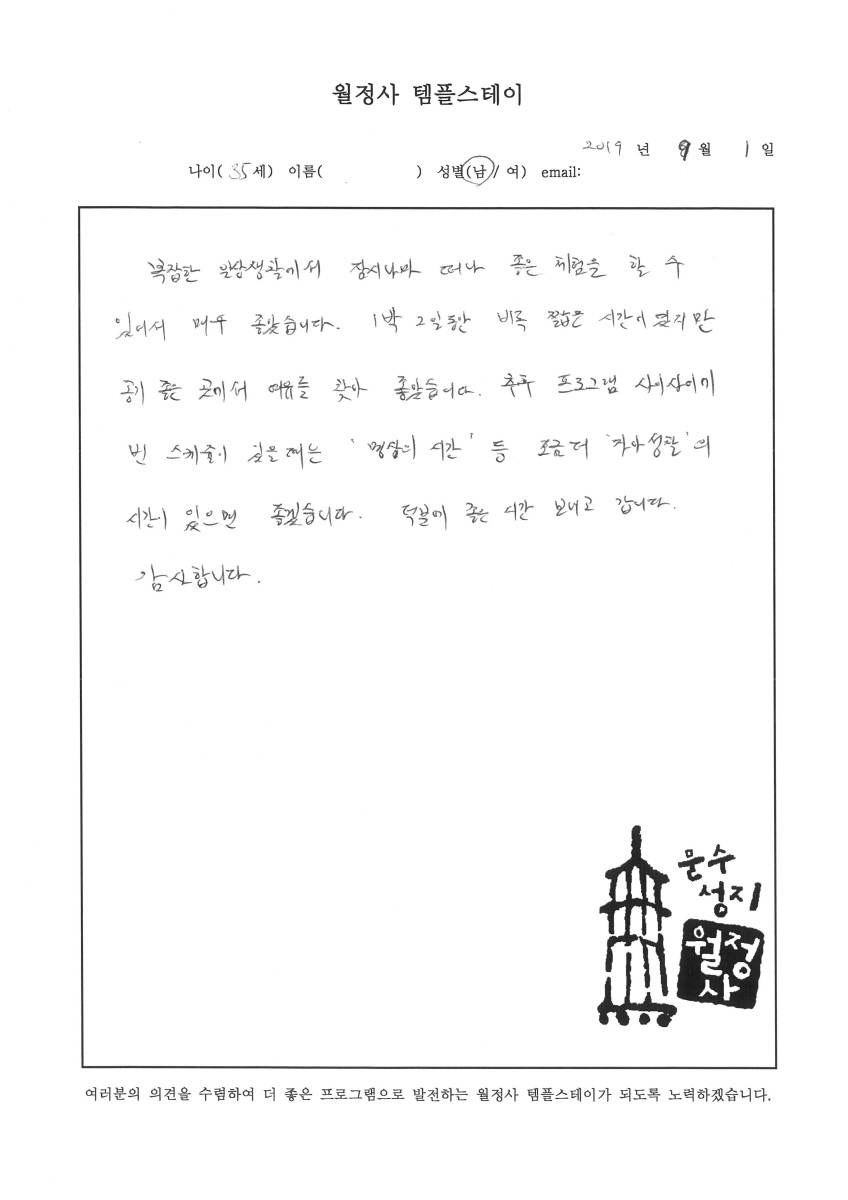 월정사 템플스테이
2019 년 9 월 1 일
나이( 35 세) 이름( ) 성별(남 / 여) email:
복잡한 일상생활에서 잠시나마 떠나 좋은 체험을 할 수
있어서 매우 좋았습니다. 1박 2일동안 비록 짧은 시간이였지만
공기 좋은 곳에서 여유를 찾아 좋았습니다. 추후 프로그램 사이사이에
빈 스케줄이 있을 때는 '명상의 시간' 등 조금 더 '자아성찰'의
시간이 있으면 좋겠습니다. 덕분에 좋은 시간 보내고 갑니다.
감사합니다.
문수
성지
월정
사
여러분의 의견을 수렴하여 더 좋은 프로그램으로 발전하는 월정사 템플스테이가 되도록 노력하겠습니다.